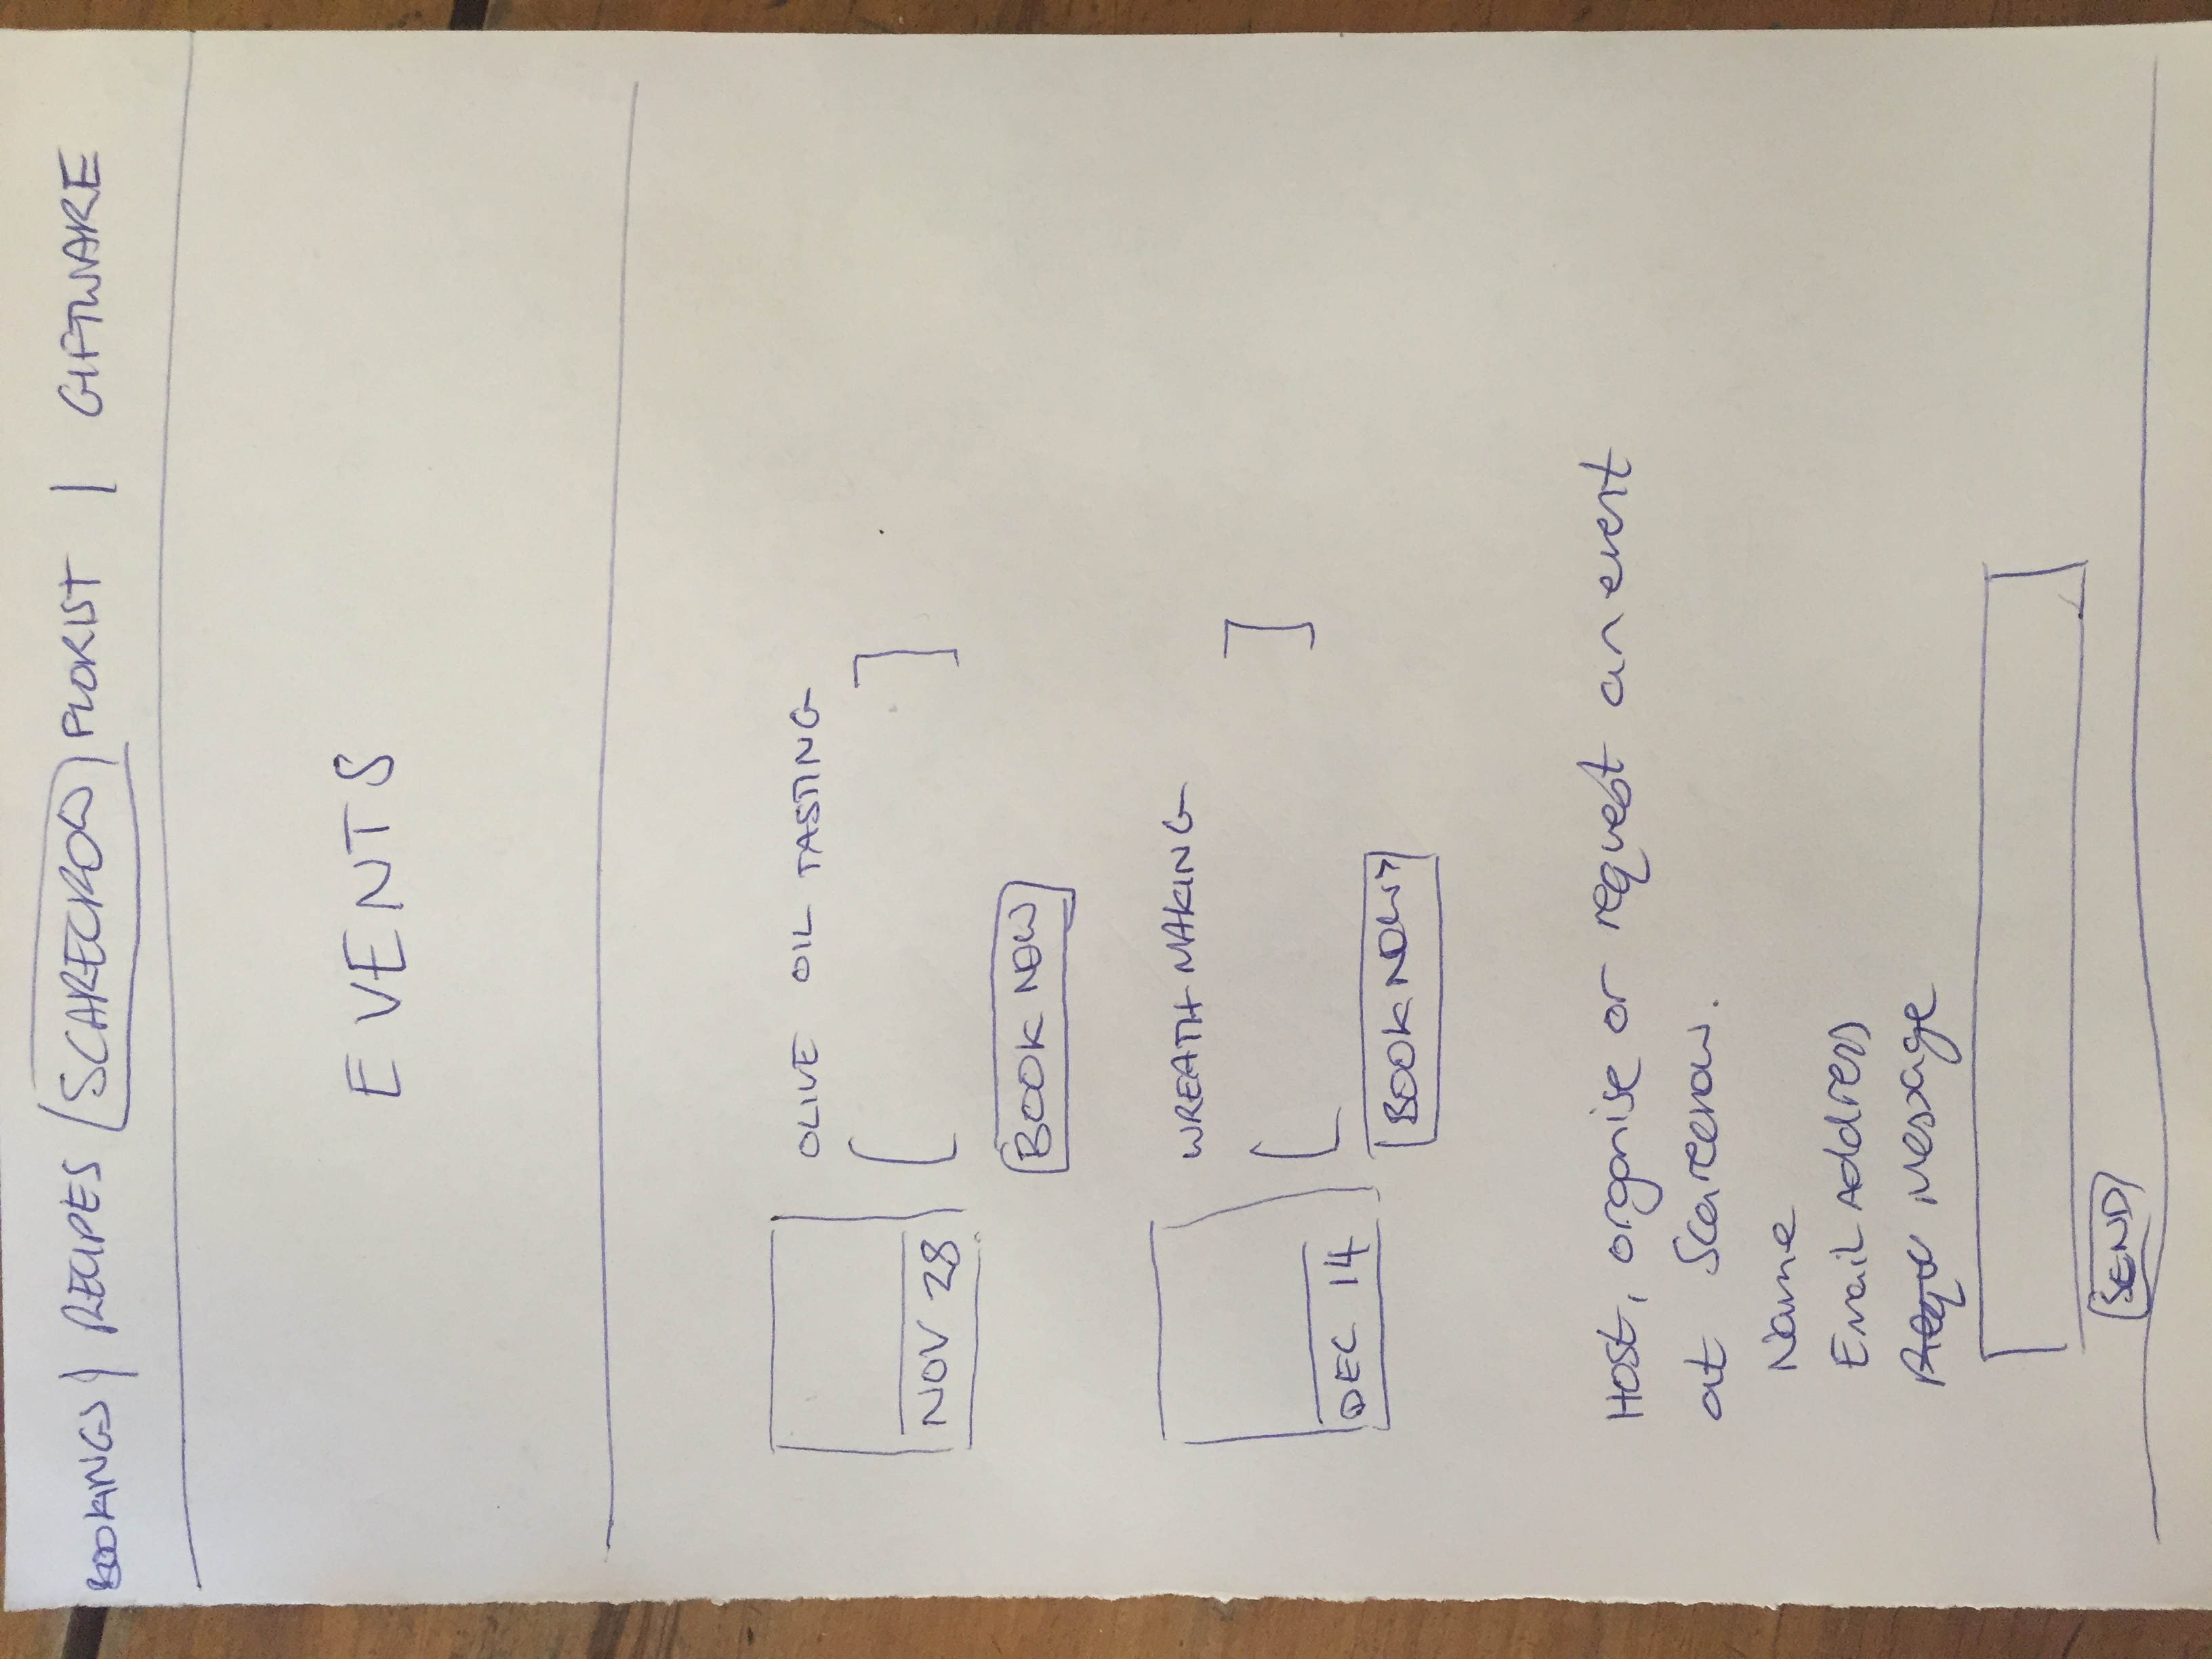 BOOKINGS | RECIPES SCARECROW FLORIST | GIFTWARE
EVENTS
OLIVE OIL TASTING
NOV 28
BOOK NOW
WREATH MAKING
DEC 14
BOOK NOW>
Host, organise or request an event
at Scarecrow.
Name
Email Address
Requ Message
SEND